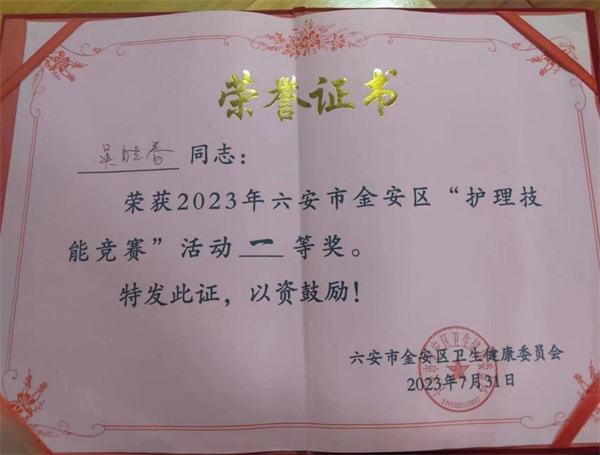 荣誉证书
吴晓春 同志：
荣获2023年六安市金安区“护理技
能竞赛”活动 一 等奖。
特发此证，以资鼓励！
六安市金安区卫生健康委员会
2023年7月31日